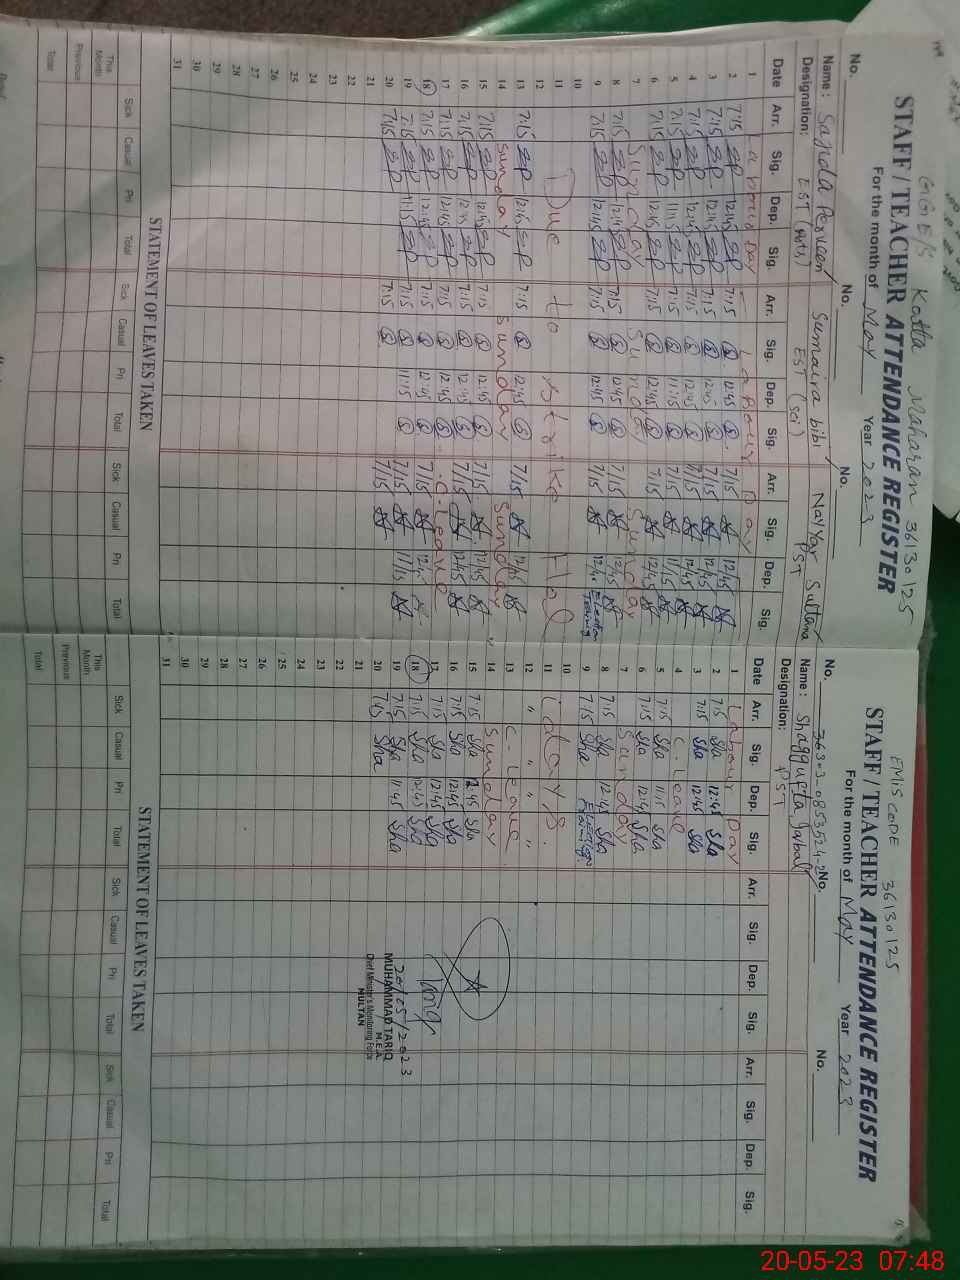 GGE/S Katta Maharan 36130125
STAFF / TEACHER ATTENDANCE REGISTER
For the month of May Year 2023
No. No. No.
Name : Sajida Perveen Sumaira bibi Nayyar Sultana
Designation: EST EST (Sci) PST
Date Arr. Sig. Dep. Sig. Arr. Sig. Dep. Sig. Arr. Sig. Dep. Sig.
1 Labour Day Labour Day
2 7:15 12:45 7:15 12:45 7/15 12/45
3 7:15 12:45 7:15 12:45 7/15 12/45
4 7:15 12:45 7:15 12:45 7/15 12/45
5 7:15 11:15 7:15 11:15 7/15 11/15
6 7:15 12:45 7:15 12:45 7/15 12/45
7 Sunday Sunday Sunday
8 7:15 12:45 7:15 12:45 7/15 12/45
9 7:15 12:45 7:15 12:45 7/15
10
11 Due to strike
12
13 7:15 12:45 7:15 12:45 7/15 12/45
14 Sunday Sunday Sunday
15 7:15 12:45 7:15 12:45 7/15 12/45
16 7:15 12:45 7:15 12:45 7/15 12/45
17 7:15 12:45 7:15 12:45 C-leave
18 7:15 12:45 7:15 12:45 7/15
19 7:15 11:15 7:15 11:15 7/15 11/15
20 7:15 7:15 7/15
21
22
23
24
25
26
27
28
29
30
31
STATEMENT OF LEAVES TAKEN
Sick Casual Pri Total Sick Casual Pri Total Sick Casual Pri Total
This Month
Previous
Total
EMIS CODE 36130125
STAFF / TEACHER ATTENDANCE REGISTER
For the month of May Year 2023
No. No. No.
Name : Shaggufta Iqbal
Designation: PST
Date Arr. Sig. Dep. Sig. Arr. Sig. Dep. Sig. Arr. Sig. Dep. Sig.
1 Labour Day
2 7:15 Sha 12:45 Sha
3 7:15 Sha 12:45 Sha
4 C-leave
5 7:15 Sha 11:15 Sha
6 7:15 Sha 12:45 Sha
7 Sunday
8 7:15 Sha 12:45 Sha
9 7/15 Sha
10
11
12 " " " "
13 C-leave
14 Sunday
15 7:15 Sha 12:45 Sha
16 7:15 Sha 12:45 Sha
17 7:15 Sha 12:45 Sha
18 7:15 Sha 12:45 Sha
19 7:15 Sha 11:45 Sha
20 7:15 Sha
21
22
23
24
25
26
27
28
29
30
31
20/05/2023
MUHAMMAD TARIQ
M.E.A.
Chief Minister's Monitoring Force
MULTAN
STATEMENT OF LEAVES TAKEN
Sick Casual Pri Total Sick Casual Pri Total Sick Casual Pri Total
This Month
Previous
Total
20-05-23 07:48